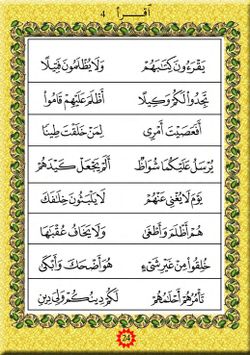 اقرأ 4
يَقْرَءُونَ كِتَٰبَهُمْ وَلَا يُظْلَمُونَ فَتِيلًا
تَجِدُوا۟ لَكُمْ وَكِيلًا أَظْلَمَ عَلَيْهِمْ قَامُوا۟
أَفَعَصَيْتَ أَمْرِى لِمَنْ خَلَقْتَ طِينًا
يُرْسَلُ عَلَيْكُمَا شُوَاظٌ أَلَمْ يَجْعَلْ كَيْدَهُمْ
يَوْمَ لَا يُغْنِى عَنْهُمْ لَا يَلْبَثُونَ خِلَٰفَكَ
هُمْ أَظْلَمَ وَأَطْغَىٰ وَلَا يَخَافُ عُقْبَٰهَا
خُلِقُوا۟ مِنْ غَيْرِ شَىْءٍ هُوَ أَضْحَكَ وَأَبْكَىٰ
تَأْمُرُهُمْ أَحْلَٰمُهُمْ لَكُمْ دِينُكُمْ وَلِىَ دِينِ
24